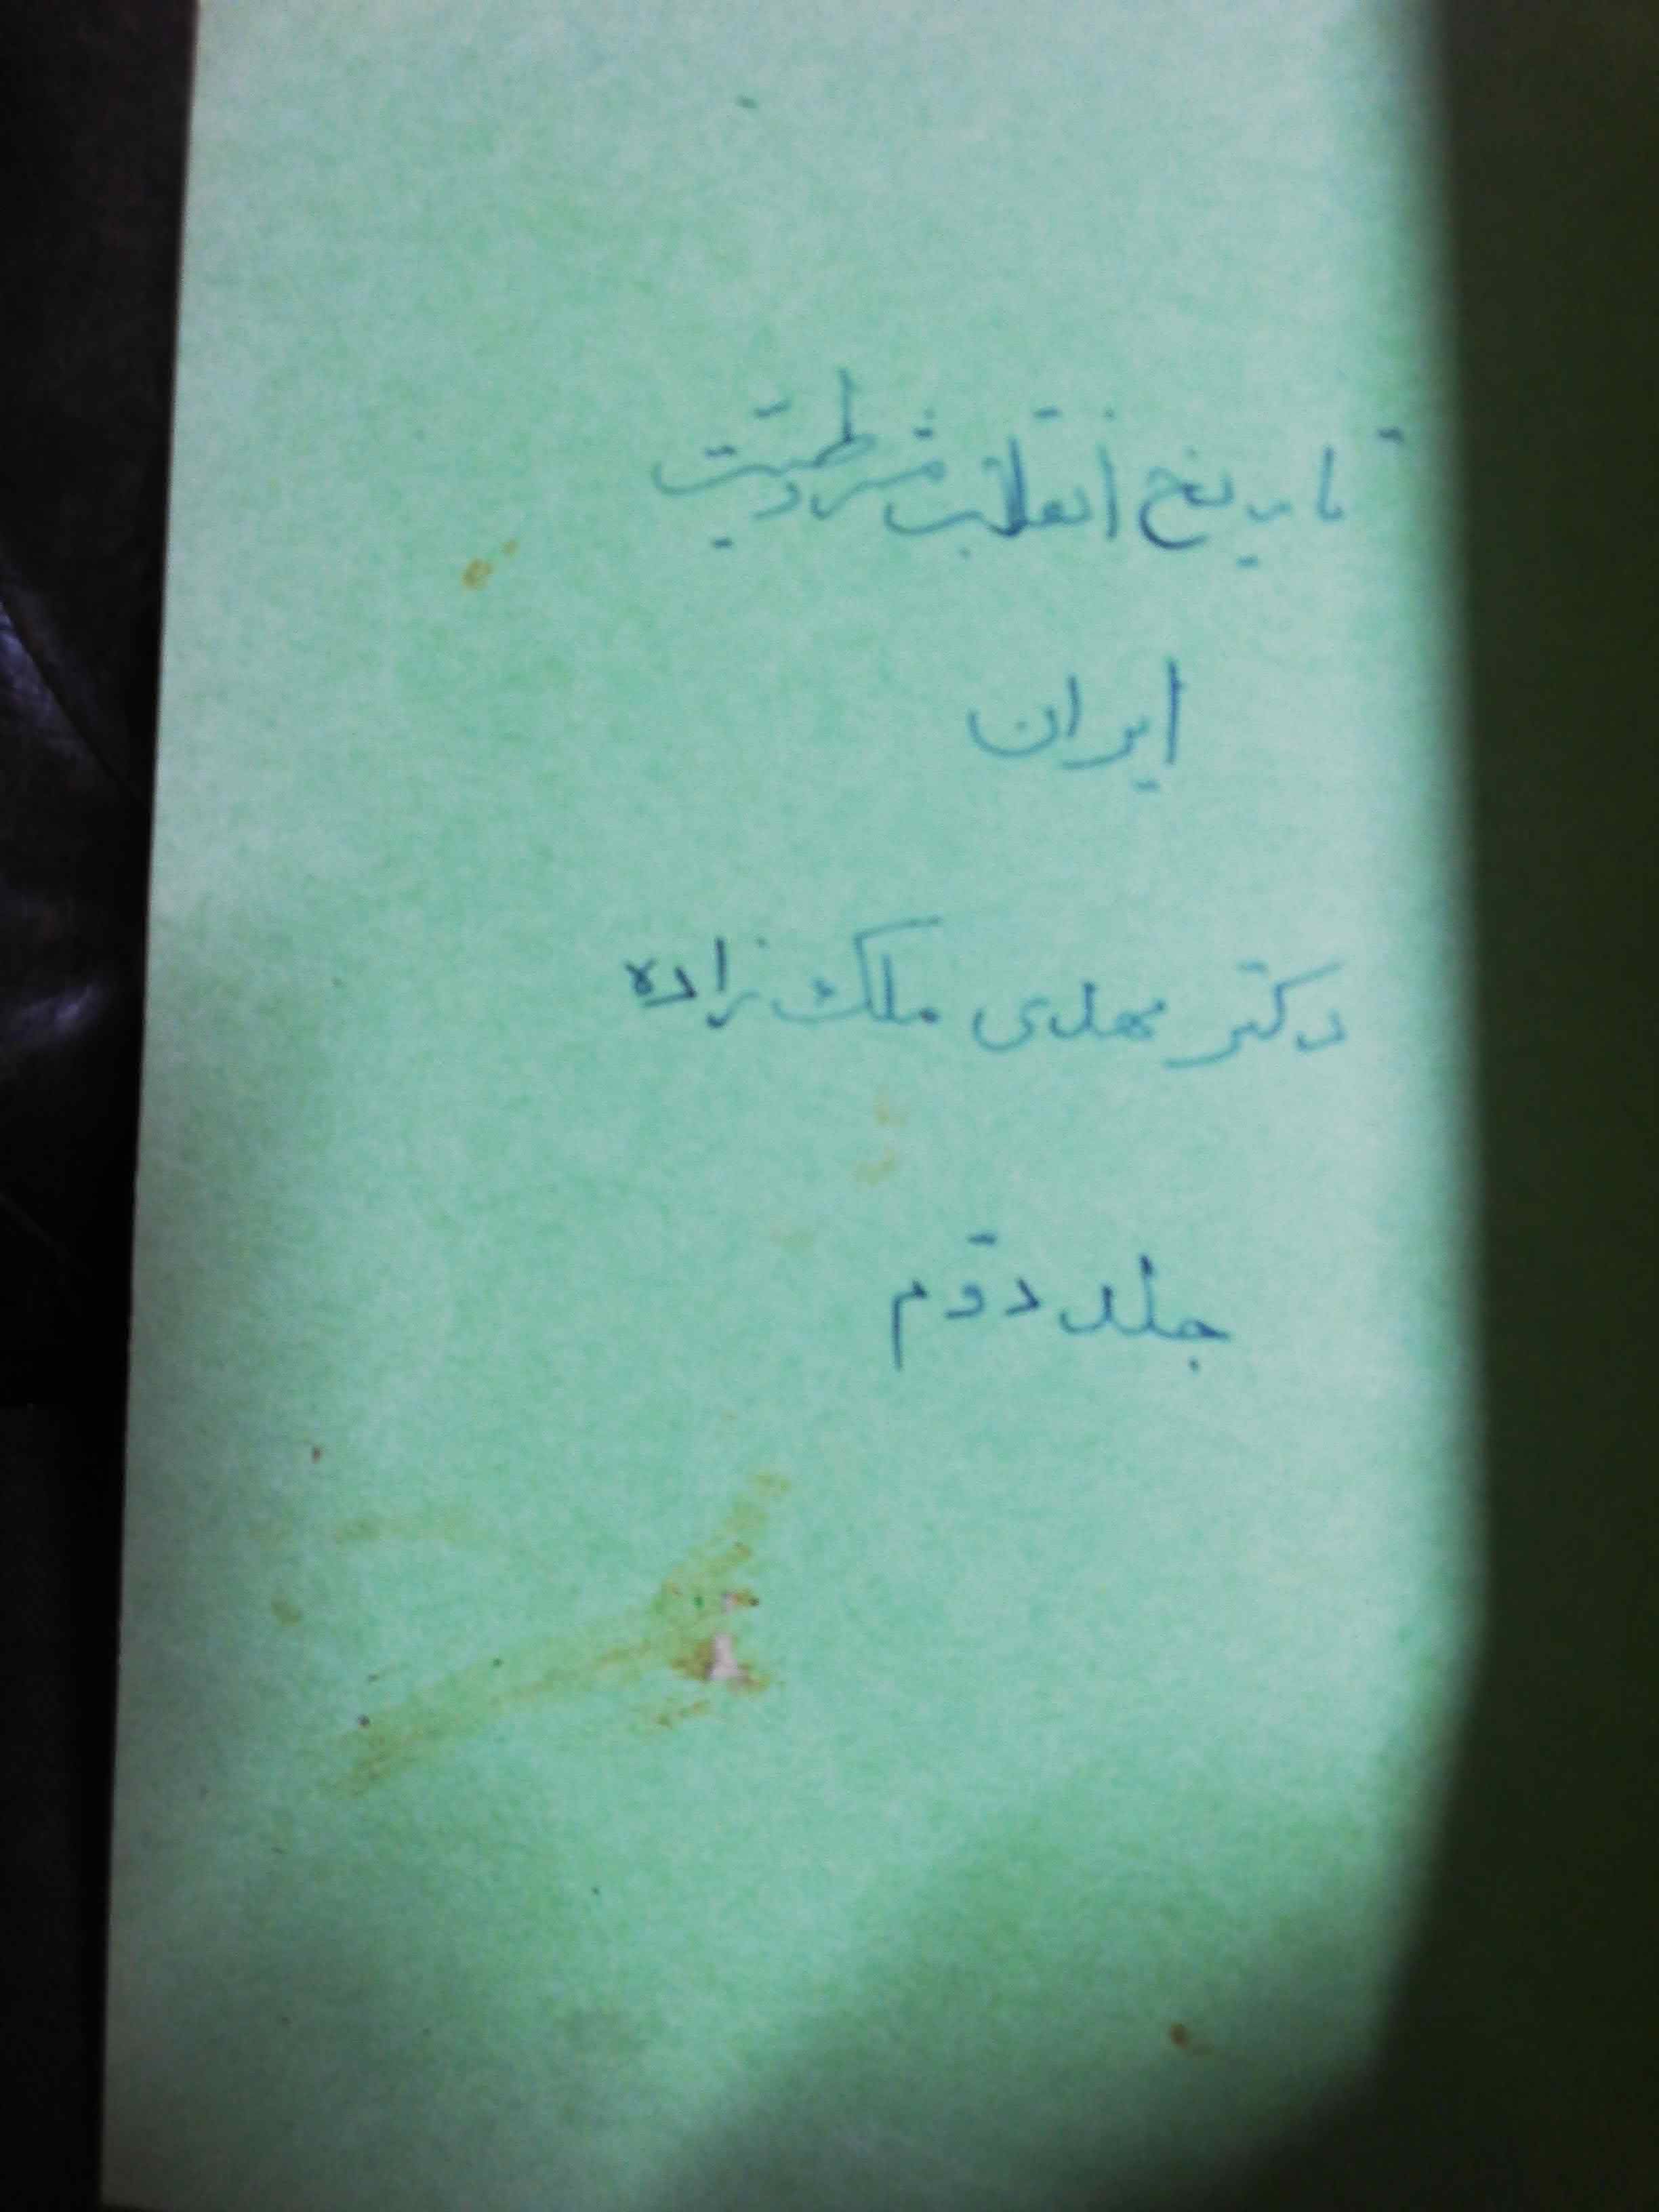 تاریخ انقلاب مشروطیّت
ایران
دکتر مهدی ملک زاده
جلد دوّم